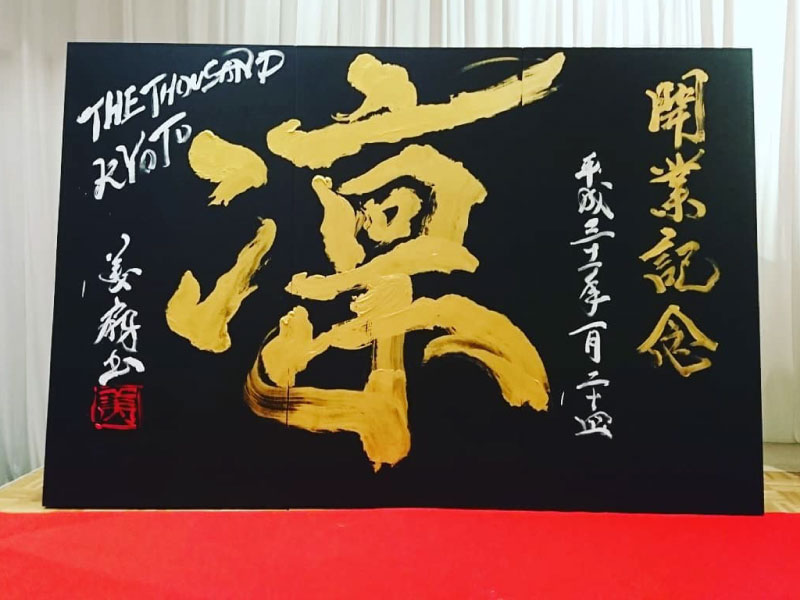 開業記念
平成三十一年一月二十四
凛
THE THOUSAND
KYOTO
美扇書